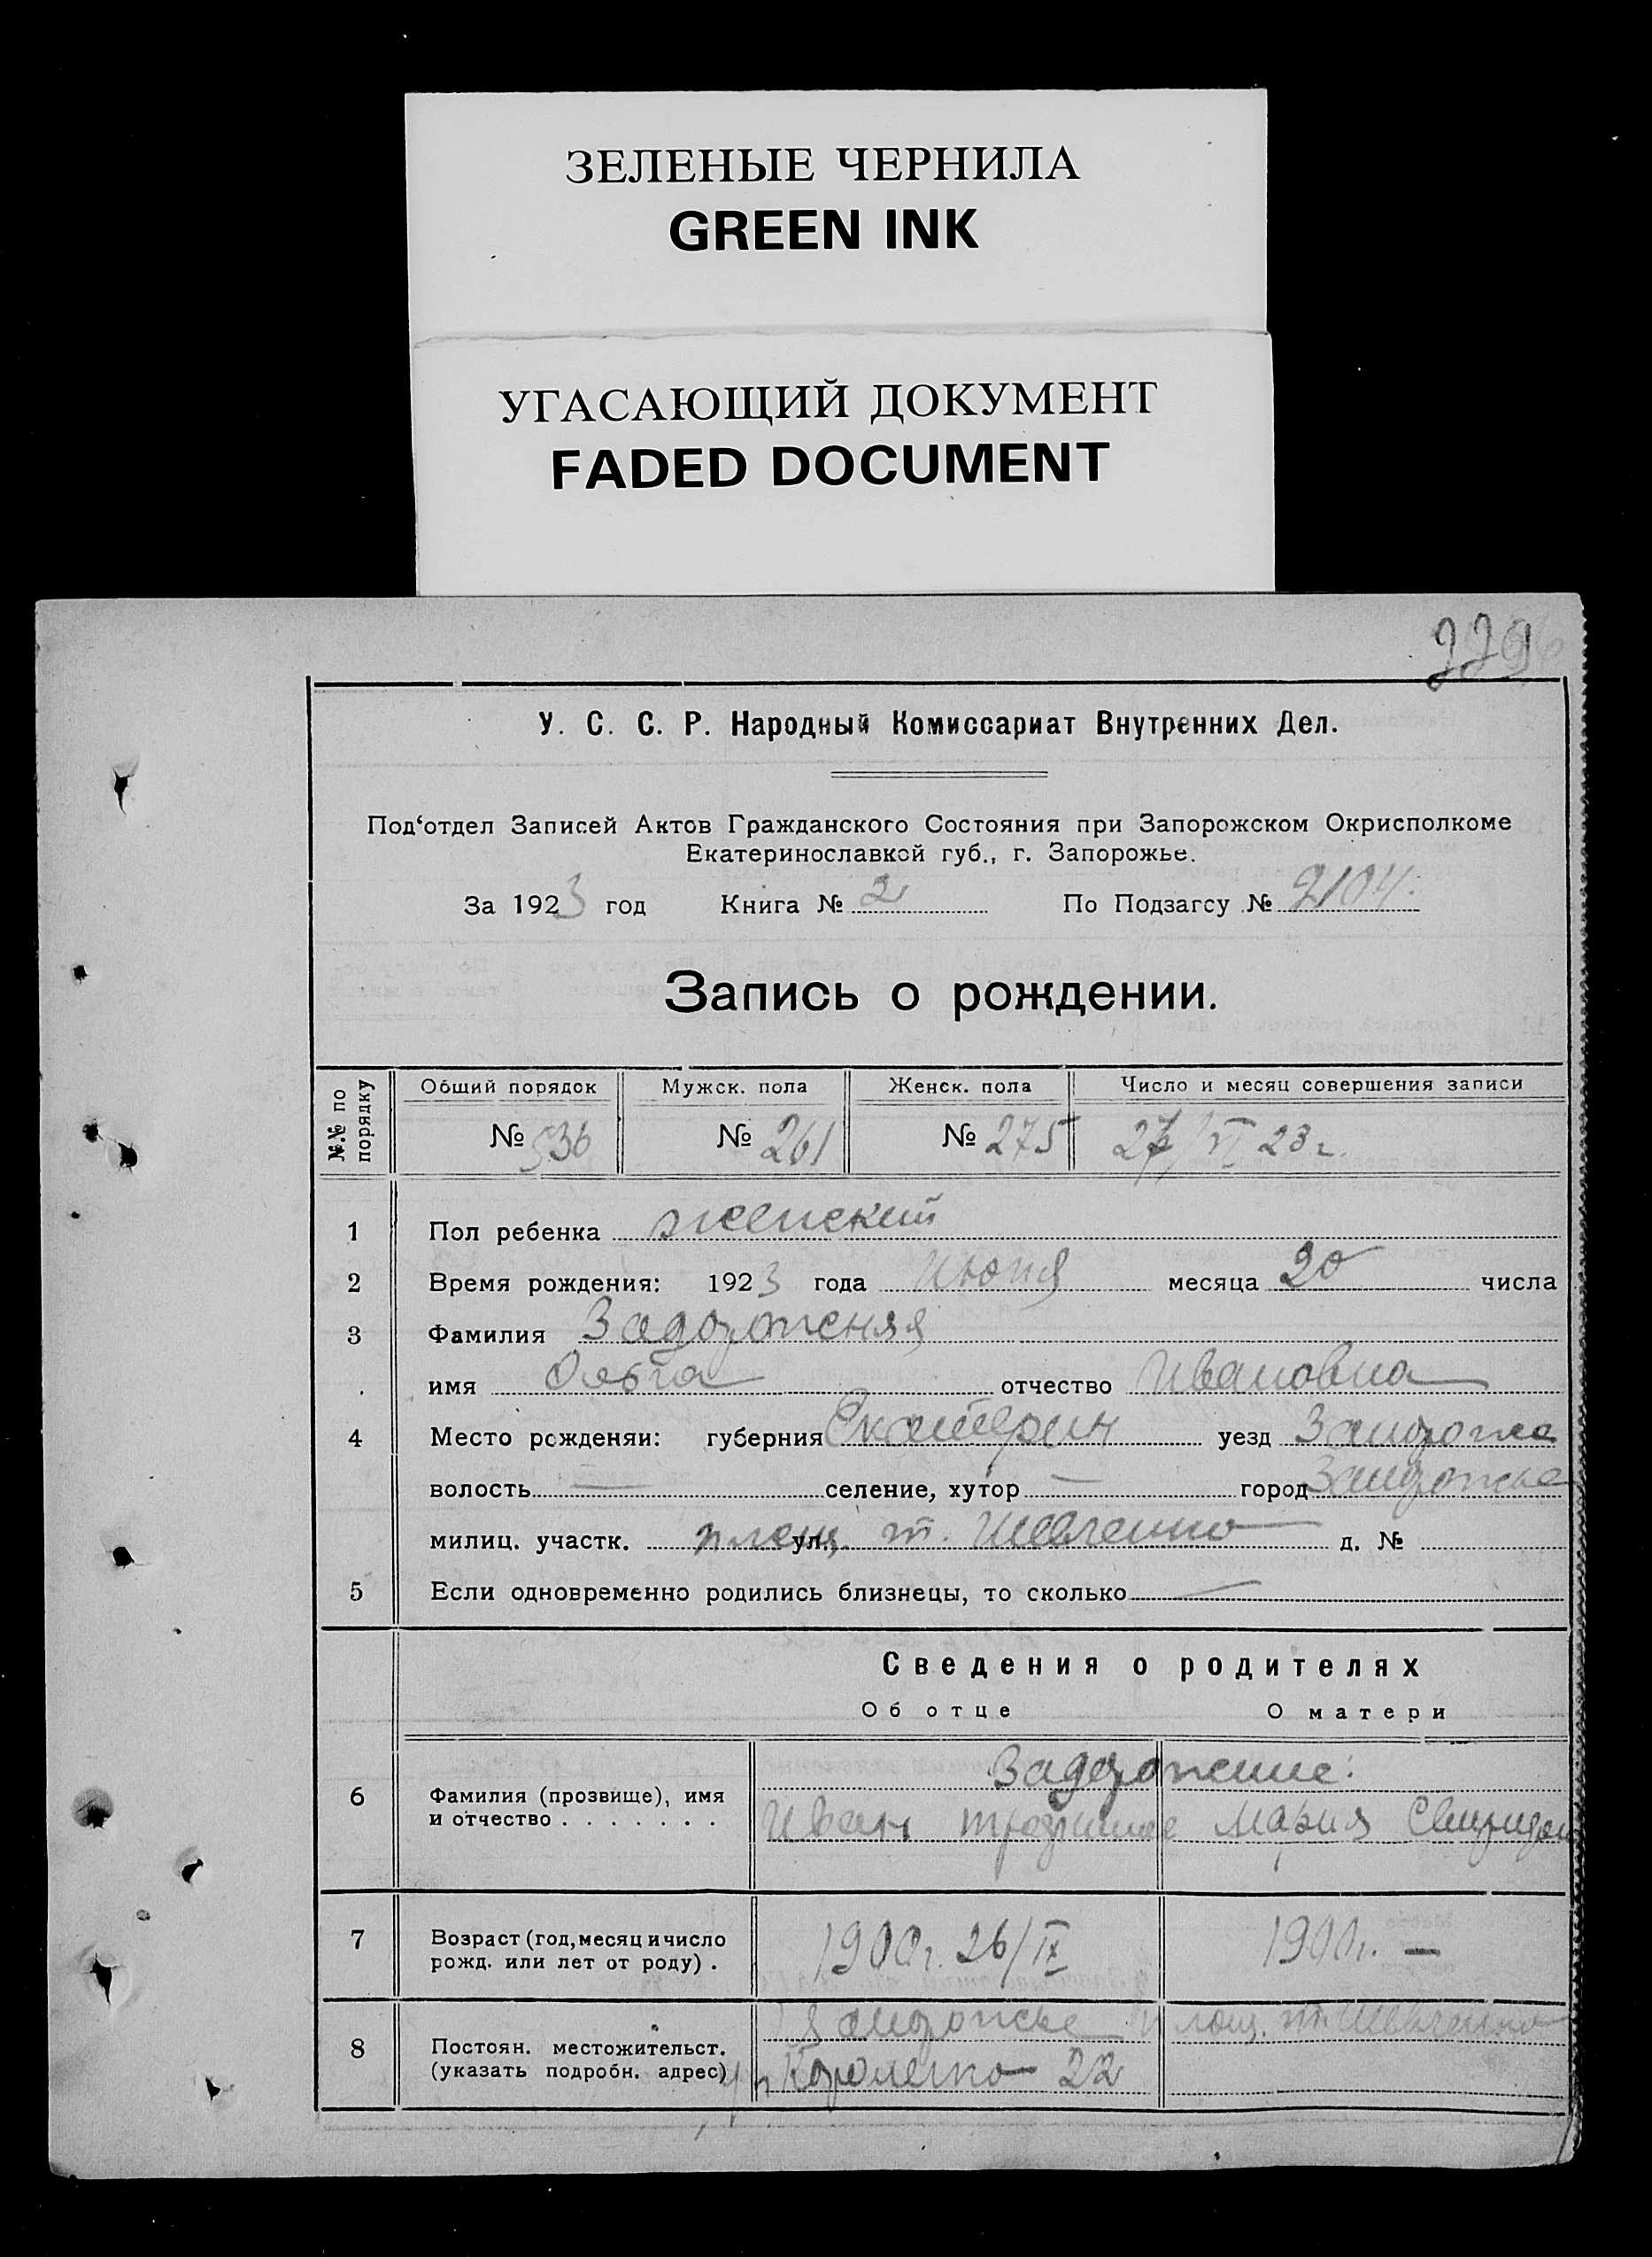 ЗЕЛЕНЫЕ ЧЕРНИЛА
GREEN INK
УГАСАЮЩИЙ ДОКУМЕНТ
FADED DOCUMENT
У. С. С. Р. Народный Комиссариат Внутренних Дел.
Под‘отдел Записей Актов Гражданского Состояния при Запорожском Окрисполкоме
Екатеринославкой губ., г. Запорожье.
За 1923 год Книга № 2 По Подзагсу № 2104.
Запись о рождении.
№.№ по порядку Общий порядок Мужск. пола Женск. пола Число и месяц совершения записи
№ 536 № 261 № 275 27/VI 23 г.
1 Пол ребенка женский
2 Время рождения: 1923 года Июня месяца 20 числа
3 Фамилия Задорожняя
имя Ольга отчество Ивановна
4 Место рожденяи: губерния Екатерин уезд Запорож
волость — селение, хутор — город Запорожье
милиц. участк. ул. площ. т. Шевченко д. №
5 Если одновременно родились близнецы, то сколько —
Сведения о родителях
Об отце О матери
Задорожние:
6 Фамилия (прозвище), имя
и отчество . . . . . . . Иван Мария Свиридон
7 Возраст (год, месяц и число
рожд. или лет от роду) . 1900 г. 26/IX 1900 г. —
8 Постоян. местожительст.
(указать подробн. адрес) Запорожье площ. т. Шевченко
Короленко 22